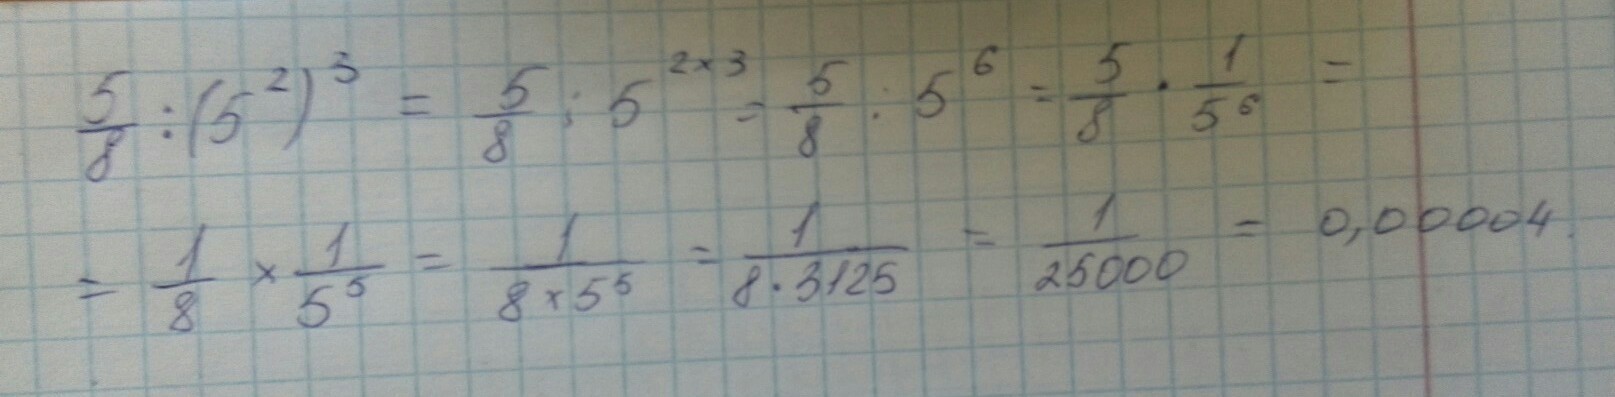 5/8 : (5²)³ = 5/8 : 5^(2×3) = 5/8 : 5⁶ = 5/8 · 1/5⁶ =
= 1/8 × 1/5⁵ = 1/(8×5⁵) = 1/(8·3125) = 1/25000 = 0,00004.